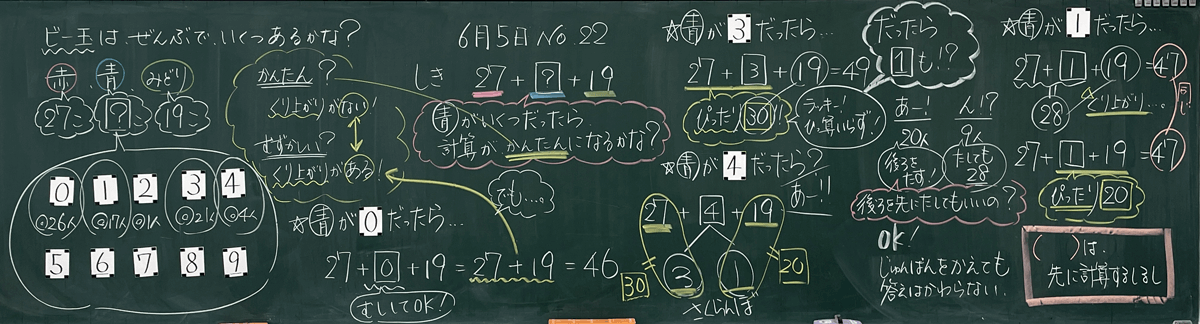 ビー玉は、ぜんぶで、いくつあるかな?
赤 青 みどり
27こ ? 19こ
0 1 2 3 4
26人 17人 1人 2人 4人
5 6 7 8 9
かんたん?
くり上がりがない!
むずかしい?
くり上がりがある!
6月5日 No.22
しき 27+?+19
青がいくつだったら
計算が、かんたんになるかな?
でも…。
☆青が0だったら…
27+0+19=27+19=46
むしてOK!
☆青が3だったら…
27+3+19=49
ぴったり30!!
ラッキー!
ひっ算いらず!
だったら
1も!?
☆青が4だったら?
あー!!
27+4+19
30 3 1 20
さくらんぼ
あー! ん!?
20人 9人
後ろを
たす!
たしても
28
後ろを先にたしてもいいの?
OK!
じゅんばんをかえても
答えはかわらない。
☆青が1だったら…
27+1+19=47
28 くり上がり…。
同じ
27+1+19=47
ぴったり20
( )は、
先に計算するしるし